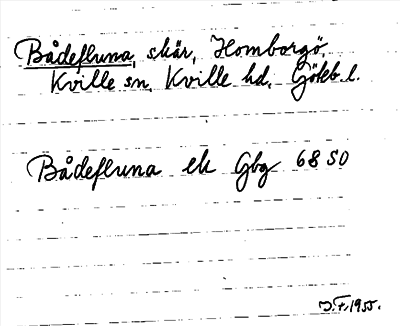 Bådefluna, skär, Homborgö,
Kville sn, Kville hd, Göteb. l.
Bådefluna ek Gbg 68 SO
J.F. 1955.